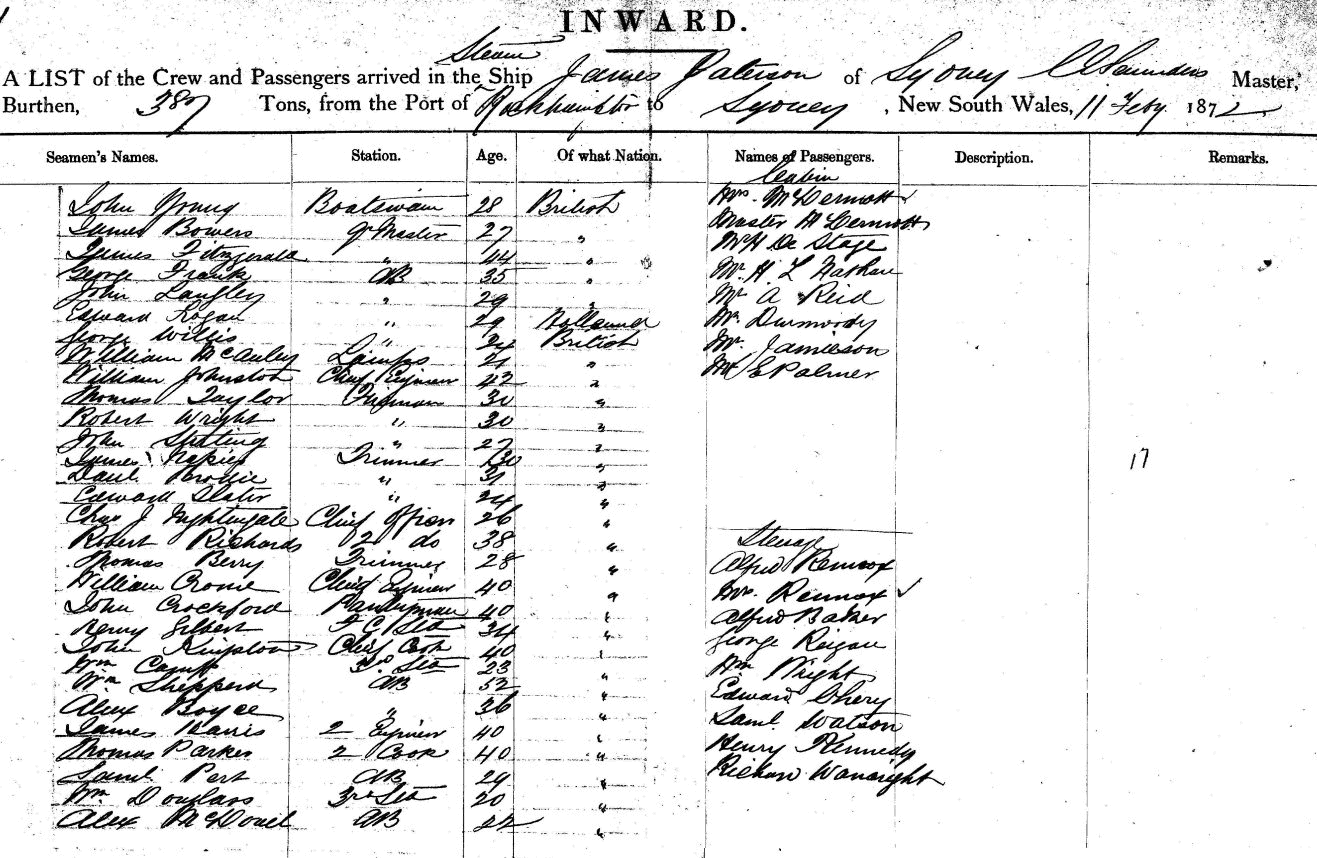 INWARD.
Steam
A LIST of the Crew and Passengers arrived in the Ship James Paterson of Sydney Saunders Master,
Burthen, 387 Tons, from the Port of Rockhampton to Sydney, New South Wales, 11 Feby 1872
Seamen's Names. Station. Age. Of what Nation. Names of Passengers. Description. Remarks.
Cabin
John Young Boatswain 28 British Mrs. McDermott
James Bowers Qr Master 27 " Master McDermott
James Fitzgerald " 44 " De Stage
George Frank AB 35 " Mr. H. L Nathan
John Langley " 29 " Mr A Reid
Edward Hogan " 29 Dunwoody
George Willis " British Mr. Jamieson
William McAuley Lamps 21 " Palmer
William Johnston Chief 42 "
Thomas Taylor Fireman 30 "
Robert Wright " 30 "
John " 27 "
James Napier Trimmer 30 " 17
Danl. Brodie " 31 "
Edward Slater " 24 "
Chas J Nightingale Chief Officer 26 "
Robert Richards 2 do 38 " Steerage
Thomas Berry Trimmer 28 " Alfred Rennox
William Crome Chief 40 " Mrs. Rennox
John Crockford Pantryman 40 " Alfred Baker
Henry Gilbert 34 " George Reigan
John Kingston Chief Cook 40 " Wm Wright
Wm Camp 3rd 23 " Edward
Wm Shepperd AB 52 "
Alex Boyce " 36 " Saml. Watson
James Harris 2 40 " Henry Kennedy
Thomas Parker 2 Cook 40 " Richard Wainright
Saml. Pert AB 29 "
Wm. Douglass 3rd 20 "
Alex AB 22 "